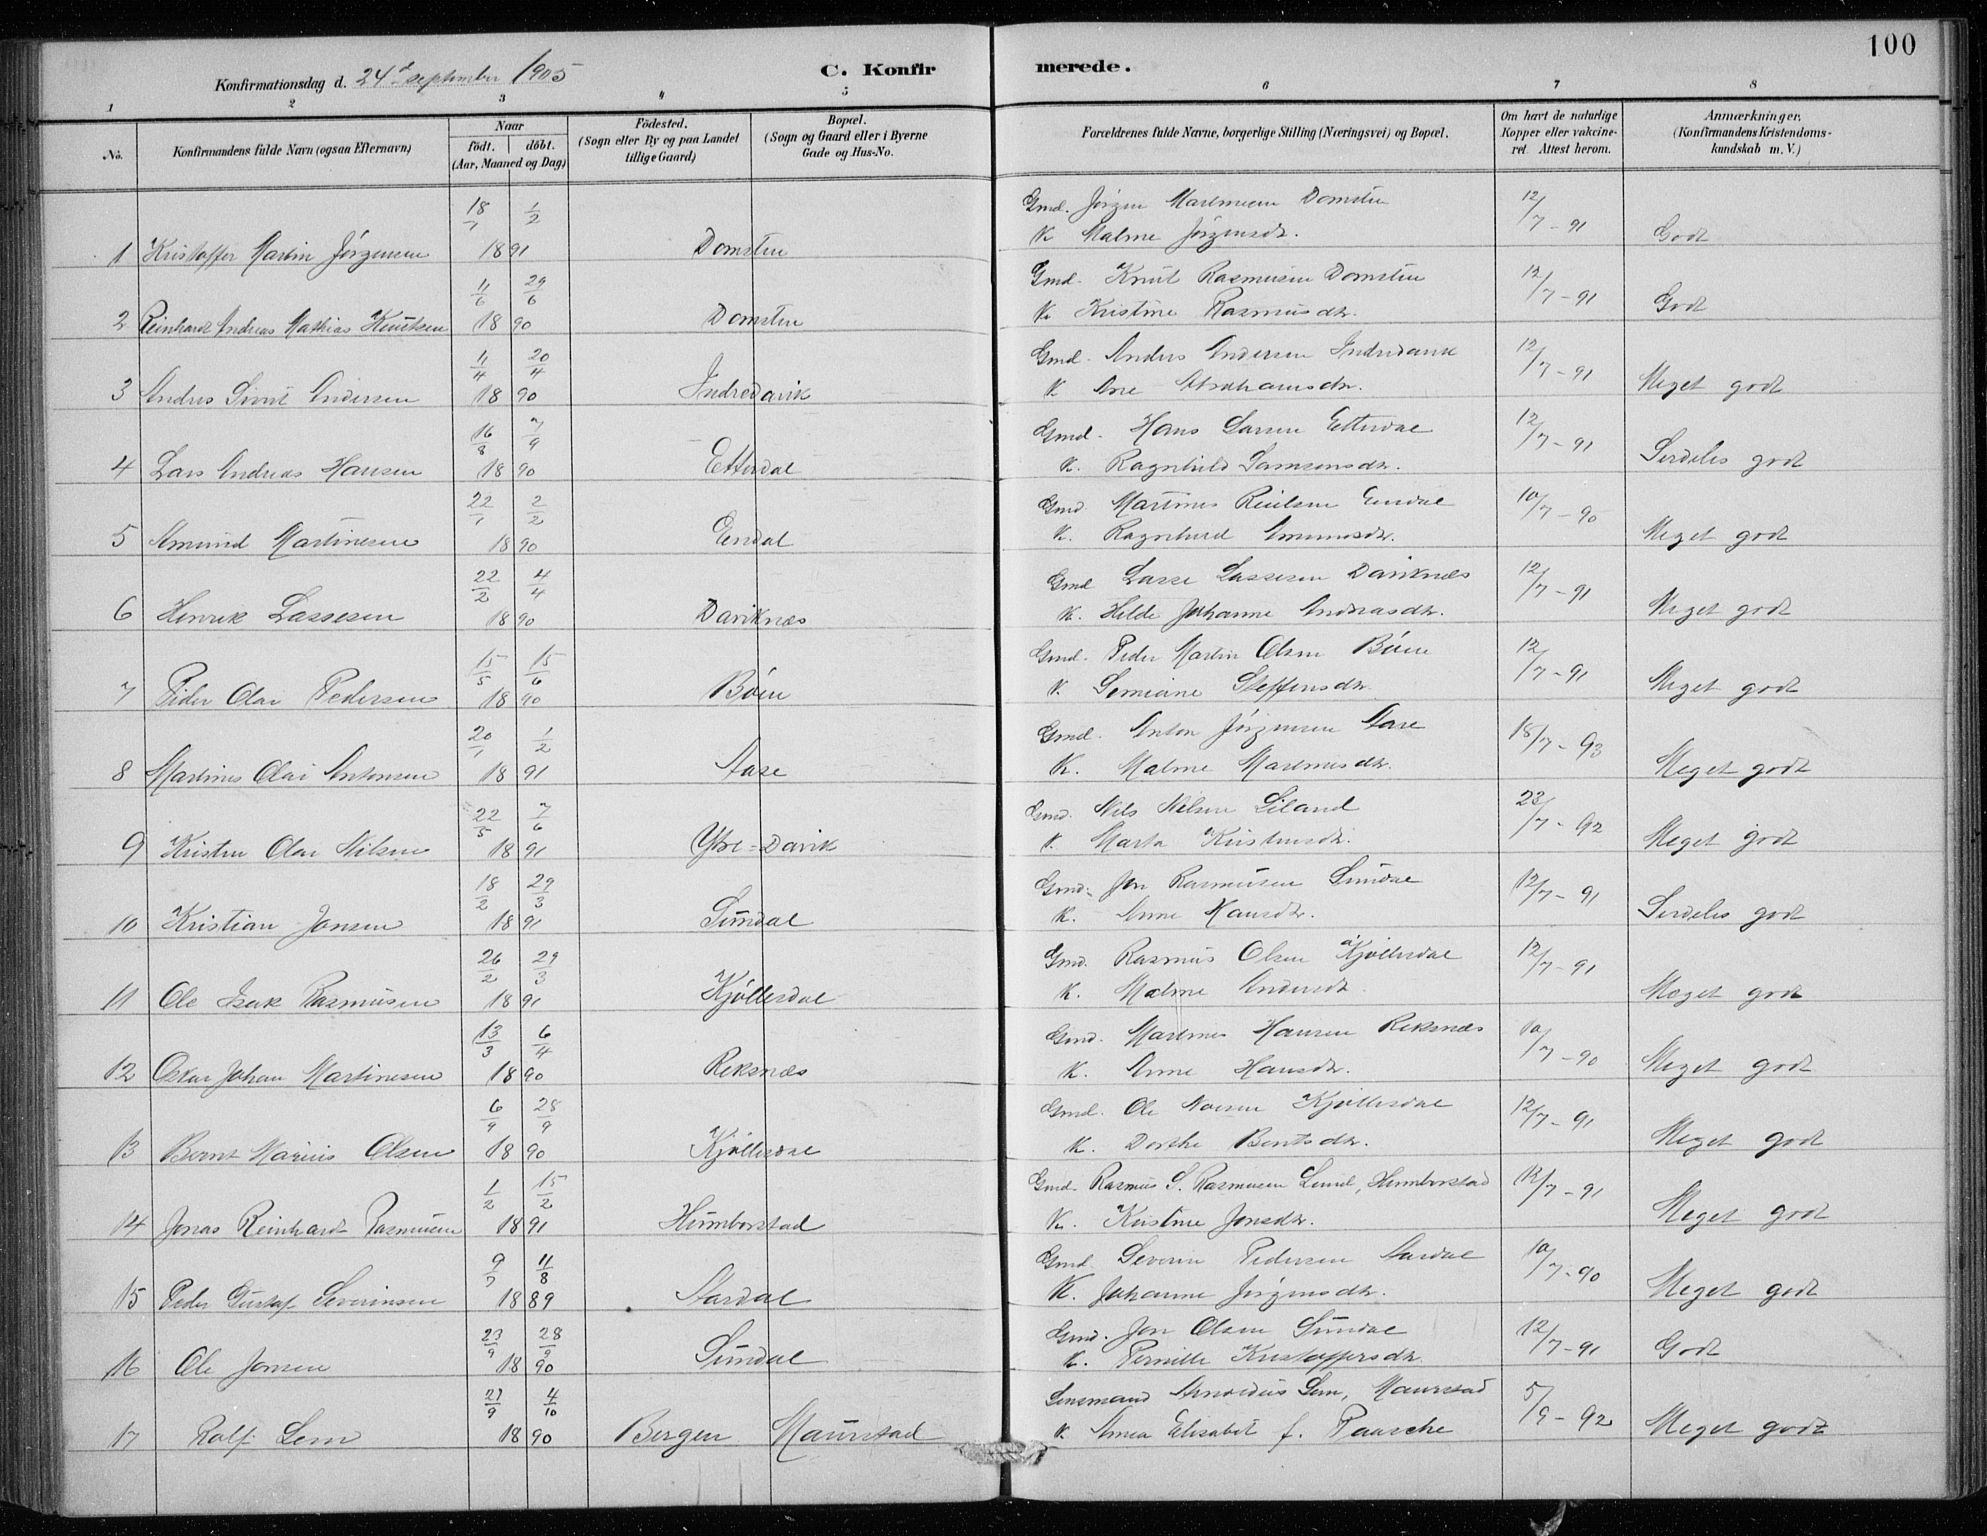 100
Konfirmationsdag d. 24de september 1905 C. Konfirmerede.
1 2 3 4 5 6 7 8
No. Konfirmandens fulde Navn (ogsaa Efternavn) Naar født. døbt. (Aar, Maaned og Dag) Fødested. (Sogn eller By og paa Landet tillige Gaard) Bopæl. (Sogn og Gaard eller i Byerne Gade og Hus-No. Forældrenes fulde Navne, borgerlige Stilling (Næringsvei) og Bopæl. Om havt de naturlige Kopper eller vakcineret. Attest herom. Anmærkninger. (Konfirmandens Kristendomskundskab m. V.)
1 Kristoffer Martin Jørgensen 18/7 1/2 1891 Domsten Gmd. Jørgen Martinusen Domsten K. Malene Jørgensdr. 12/7-91 Godt
2 Reinhardt Andreas Mathias Knutsen 11/6 29/6 1890 Domsten Gmd. Knut Rasmusen Domsten K. Kristine Rasmusdr. 12/7-91 Godt
3 Andres Sivert Andersen 11/4 20/4 1890 Indredavik Gmd. Anders Andersen Indredavik K. Ane Abrahamsdr. 12/7-91 Meget godt
4 Lars Andreas Hansen 16/8 7/9 1890 Etterdal Gmd. Hans Larsen Etterdal K. Ragnhild Samsonsdr. 12/7-91 Serdeles godt
5 Amund Martinesen 22/1 2/2 1890 Endal Gmd. Martines Endal K. Ragnhild 10/7-90 Meget godt
6 Henrik Lassesen 22/2 4/4 1890 Daviknæs Gmd. Lasse Lassesen Daviknæs K. Helde Johanne Andreasdr. 12/7-91 Meget godt
7 Peder Olai Pedersen 15/5 15/6 1890 Bøen Gmd. Peder Martin Olsen Bøen K. Semiane Steffensdr. 12/7-91 Meget godt
8 Martines Olai Antonsen 20/1 1/2 1891 Aase Gmd. Anton Jørgensen Aase K. Malene Martinusdr. 18/7-93 Meget godt
9 Kristen Olai Nilsen 22/5 7/6 1891 Ytre-Davik Gmd. Nils Nilsen Liland K. Marta Kristensdr. 23/7-92 Meget godt
10 Kristian Jonsen 18/2 29/3 1891 Sundal Gmd. Jon Rasmusen Sundal K. Anne Hansdr. 12/7-91 Serdeles godt
11 Ole Isak Rasmusen 26/2 29/3 1891 Kjøllesdal Gmd. Rasmus Olsen Kjøllesdal K. Malene Andersdr. 12/7-91 Meget godt
12 Oskar Johan Martinesen 13/3 6/4 1890 Reksnæs Gmd. Martines Hansen Reksnæs K. Anne Hansdr. 10/7-90 Meget godt
13 Bernt Marius Olsen 6/9 28/9 1890 Kjøllesdal Gmd. Ole Kjøllesdal K. Dorthe Berntsdr. 12/7-91 Meget godt
14 Jonas Reinhardt Rasmusen 1/2 15/2 1891 Humborstad Gmd. Rasmus S. Rasmusen Humborstad K. Kristine Jonsdr. 12/7-91 Meget godt
15 Peder Gustaf Severinsen 9/7 11/8 1889 Aardal Gmd. Severin Pedersen Aardal K. Johanne Jørgensdr. 10/7-90 Meget godt
16 Ole Jonsen 23/9 28/9 1890 Sundal Gmd. Jon Olsen Sundal K. Pernille Kristoffersdr. 12/7-91 Godt
17 Rolf Lem 27/9 4/10 1890 Bergen Maurstad Lensmand Arnoldus Lem, Maurstad K. Anna Elisabet f. Paasche 5/9-92 Meget godt